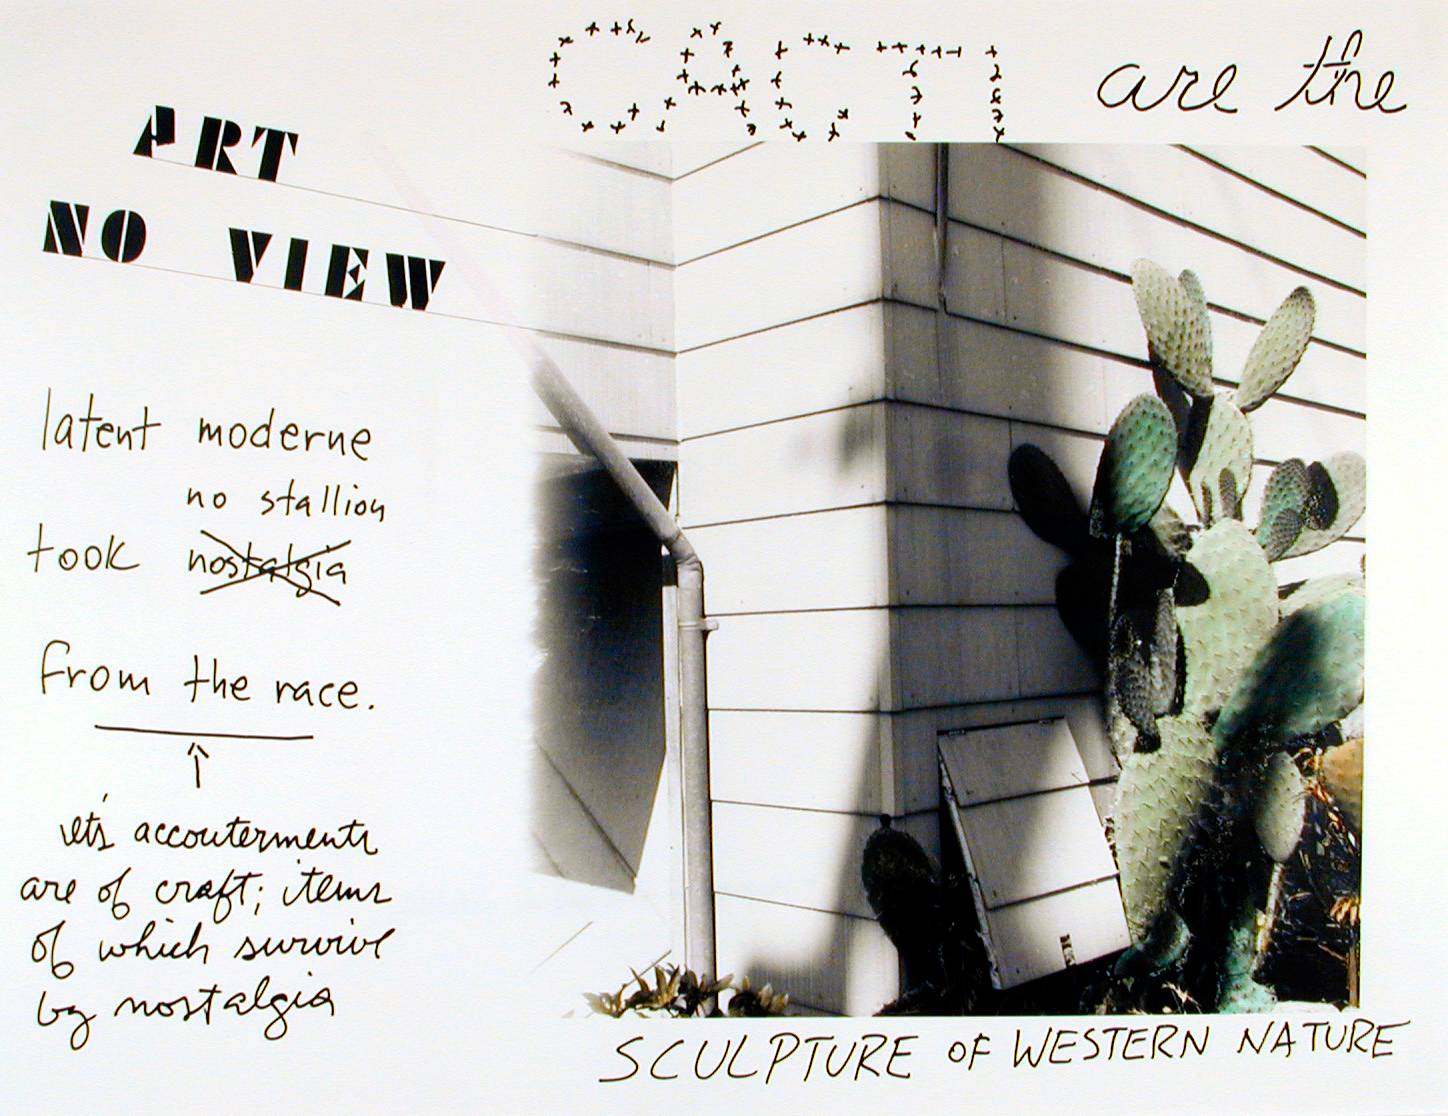 CACTI are the
ART
NO VIEW
latent moderne
no stallion
took nostalgia
from the race.
it's accouterments
are of craft; items
of which survive
by nostalgia
SCULPTURE OF WESTERN NATURE